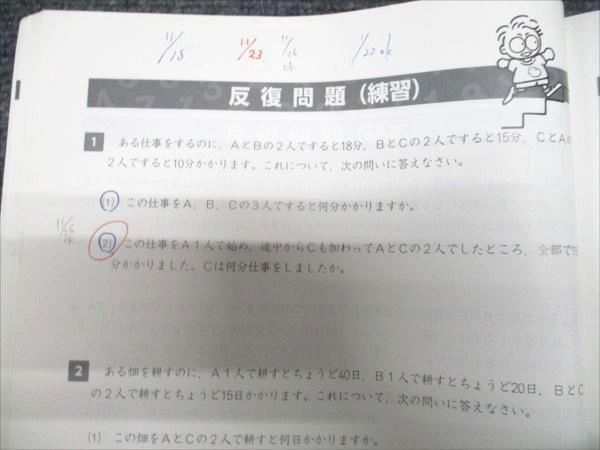 11/18 11/23 11/26 ok 1/22 ok
反復問題(練習)
1 ある仕事をするのに，AとBの2人ですると18分，BとCの2人ですると15分，CとAの
2人ですると10分かかります。これについて，次の問いに答えなさい。
(1) この仕事をA，B，Cの3人ですると何分かかりますか。
11/26 ok
(2) この仕事をA1人で始め，途中からCも加わってAとCの2人でしたところ，全部で
分かかりました。Cは何分仕事をしましたか。
2 ある畑を耕すのに，A1人で耕すとちょうど40日，B1人で耕すとちょうど20日，BとC
の2人で耕すとちょうど15日かかります。これについて，次の問いに答えなさい。
(1) この畑をAとCの2人で耕すと何日かかりますか。